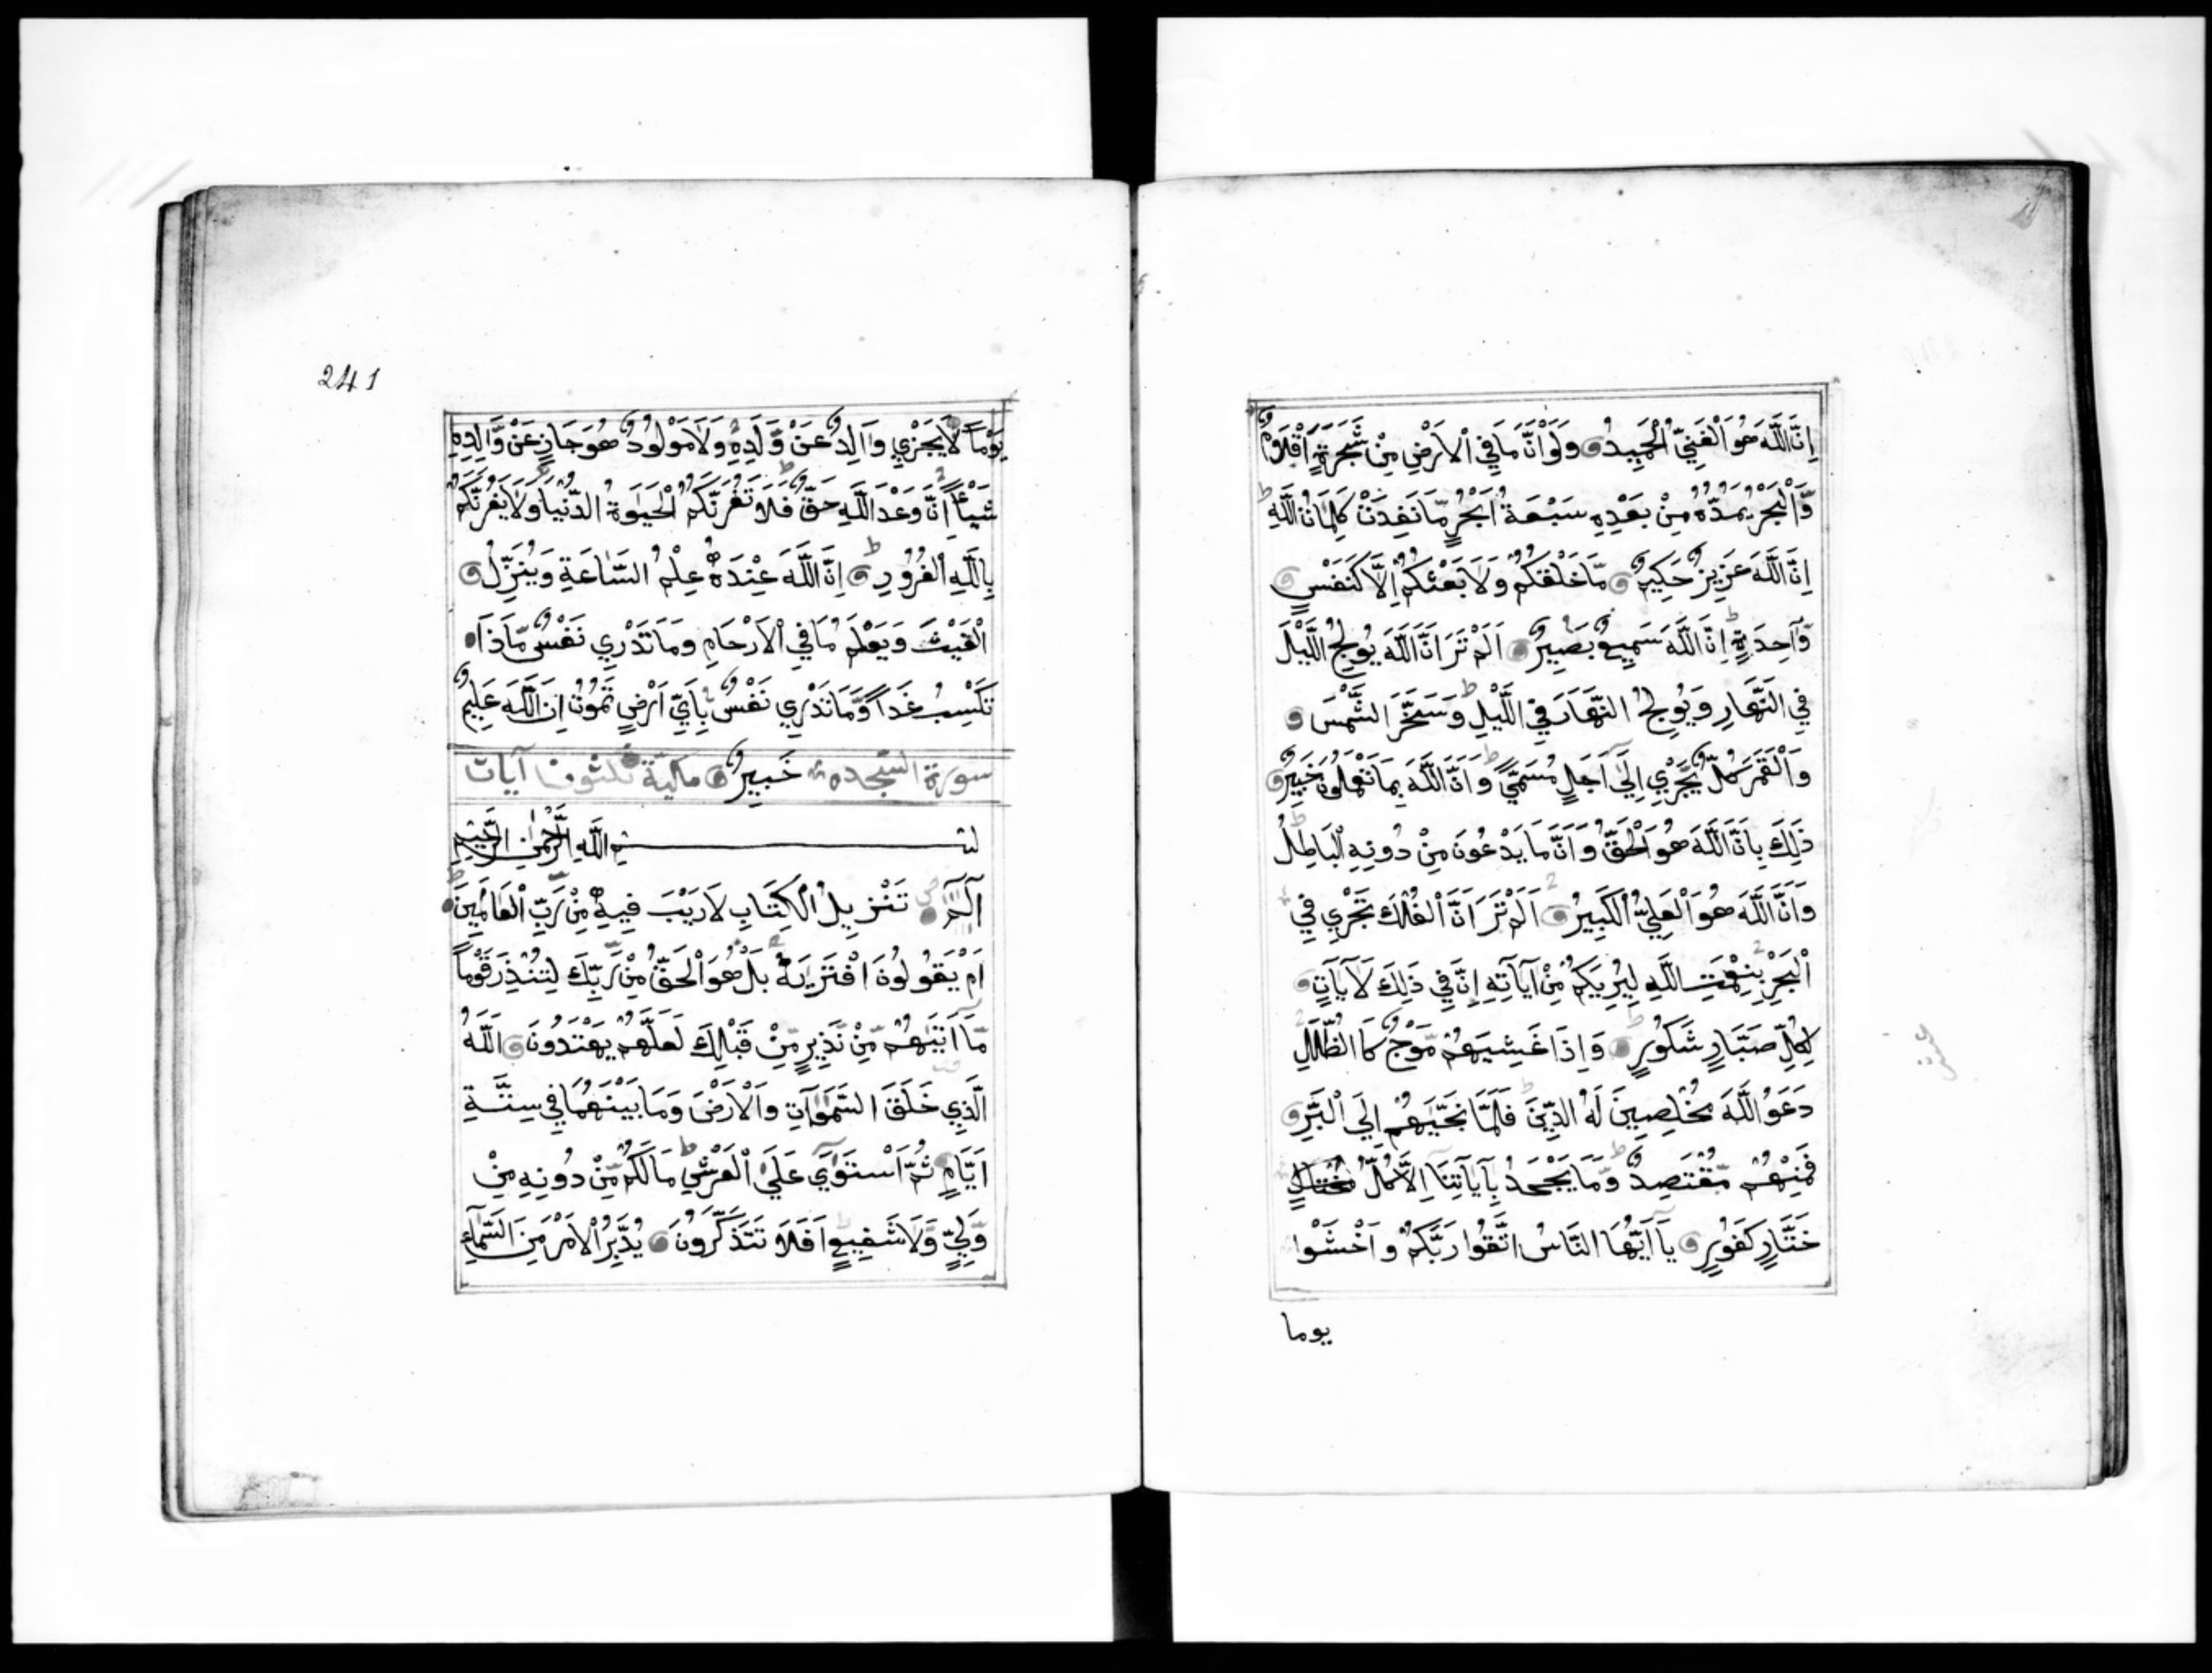 اِنَّ اللَّهَ هُوَ الْغَنِيُّ الْحَمِيدُ وَلَوْ اَنَّ مَا فِي الْاَرْضِ مِنْ شَجَرَةٍ اَقْلَامٌ
وَّالْبَحْرُ يَمُدُّهُ مِنْ بَعْدِهِ سَبْعَةُ اَبْحُرٍ مَّا نَفِدَتْ كَلِمَاتُ اللَّهِ
اِنَّ اللَّهَ عَزِيزٌ حَكِيمٌ مَّا خَلْقُكُمْ وَلَا بَعْثُكُمْ اِلَّا كَنَفْسٍ
وَّاحِدَةٍ اِنَّ اللَّهَ سَمِيعٌ بَصِيرٌ اَلَمْ تَرَ اَنَّ اللَّهَ يُولِجُ اللَّيْلَ
فِي النَّهَارِ وَيُولِجُ النَّهَارَ فِي اللَّيْلِ وَسَخَّرَ الشَّمْسَ
وَالْقَمَرَ كُلٌّ يَّجْرِي اِلَى اَجَلٍ مُسَمًّى وَاَنَّ اللَّهَ بِمَا تَعْمَلُونَ خَبِيرٌ
ذَلِكَ بِاَنَّ اللَّهَ هُوَ الْحَقُّ وَاَنَّ مَا يَدْعُونَ مِنْ دُونِهِ الْبَاطِلُ
وَاَنَّ اللَّهَ هُوَ الْعَلِيُّ الْكَبِيرُ اَلَمْ تَرَ اَنَّ الْفُلْكَ تَجْرِي فِي
الْبَحْرِ بِنِعْمَتِ اللَّهِ لِيُرِيَكُمْ مِّنْ آيَاتِهِ اِنَّ فِي ذَلِكَ لَآيَاتٍ
لِكُلِّ صَبَّارٍ شَكُورٍ وَاِذَا غَشِيَهُمْ مَّوْجٌ كَالظُّلَلِ
دَعَوُا اللَّهَ مُخْلِصِينَ لَهُ الدِّينَ فَلَمَّا نَجَّيهُمْ اِلَى الْبَرِّ
فَمِنْهُمْ مُّقْتَصِدٌ وَّمَا يَجْحَدُ بِآيَاتِنَا اِلَّا كُلُّ
خَتَّارٍ كَفُورٍ يَا اَيُّهَا النَّاسُ اتَّقُوا رَبَّكُمْ وَاخْشَوْا
يوما
241
يَوْماً لَّا يَجْزِي وَالِدٌ عَنْ وَّلَدِهِ وَلَا مَوْلُودٌ هُوَ جَازٍ عَنْ وَّالِدِهِ
شَيْئاً اِنَّ وَعْدَ اللَّهِ حَقٌّ فَلَا تَغُرَّنَّكُمُ الْحَيٰوةُ الدُّنْيَا وَلَا يَغُرَّنَّكُمْ
بِاللَّهِ الْغُرُورُ اِنَّ اللَّهَ عِنْدَهُ عِلْمُ السَّاعَةِ وَيُنَزِّلُ
الْغَيْثَ وَيَعْلَمُ مَا فِي الْاَرْحَامِ وَمَا تَدْرِي نَفْسٌ مَّاذَا
تَكْسِبُ غَداً وَّمَا تَدْرِي نَفْسٌ بِاَيِّ اَرْضٍ تَمُوتُ اِنَّ اللَّهَ عَلِيمٌ
سورة السجده خَبِيرٌ مكية ثلثون آيات
بسم اللَّهِ الرَّحْمٰنِ الرَّحِيمِ
آلم تَنْزِيلُ الْكِتَابِ لَا رَيْبَ فِيهِ مِنْ رَّبِّ الْعَالَمِينَ
اَمْ يَقُولُونَ افْتَرَيهُ بَلْ هُوَ الْحَقُّ مِنْ رَّبِّكَ لِتُنْذِرَ قَوْماً
مَّا اَتَيهُمْ مِّنْ نَّذِيرٍ مِّنْ قَبْلِكَ لَعَلَّهُمْ يَهْتَدُونَ اَللَّهُ
الَّذِي خَلَقَ السَّمٰوَاتِ وَالْاَرْضَ وَمَا بَيْنَهُمَا فِي سِتَّةِ
اَيَّامٍ ثُمَّ اسْتَوٰى عَلَى الْعَرْشِ مَا لَكُمْ مِّنْ دُونِهِ مِنْ
وَّلِيٍّ وَّلَا شَفِيعٍ اَفَلَا تَتَذَكَّرُونَ يُدَبِّرُ الْاَمْرَ مِنَ السَّمَاءِ